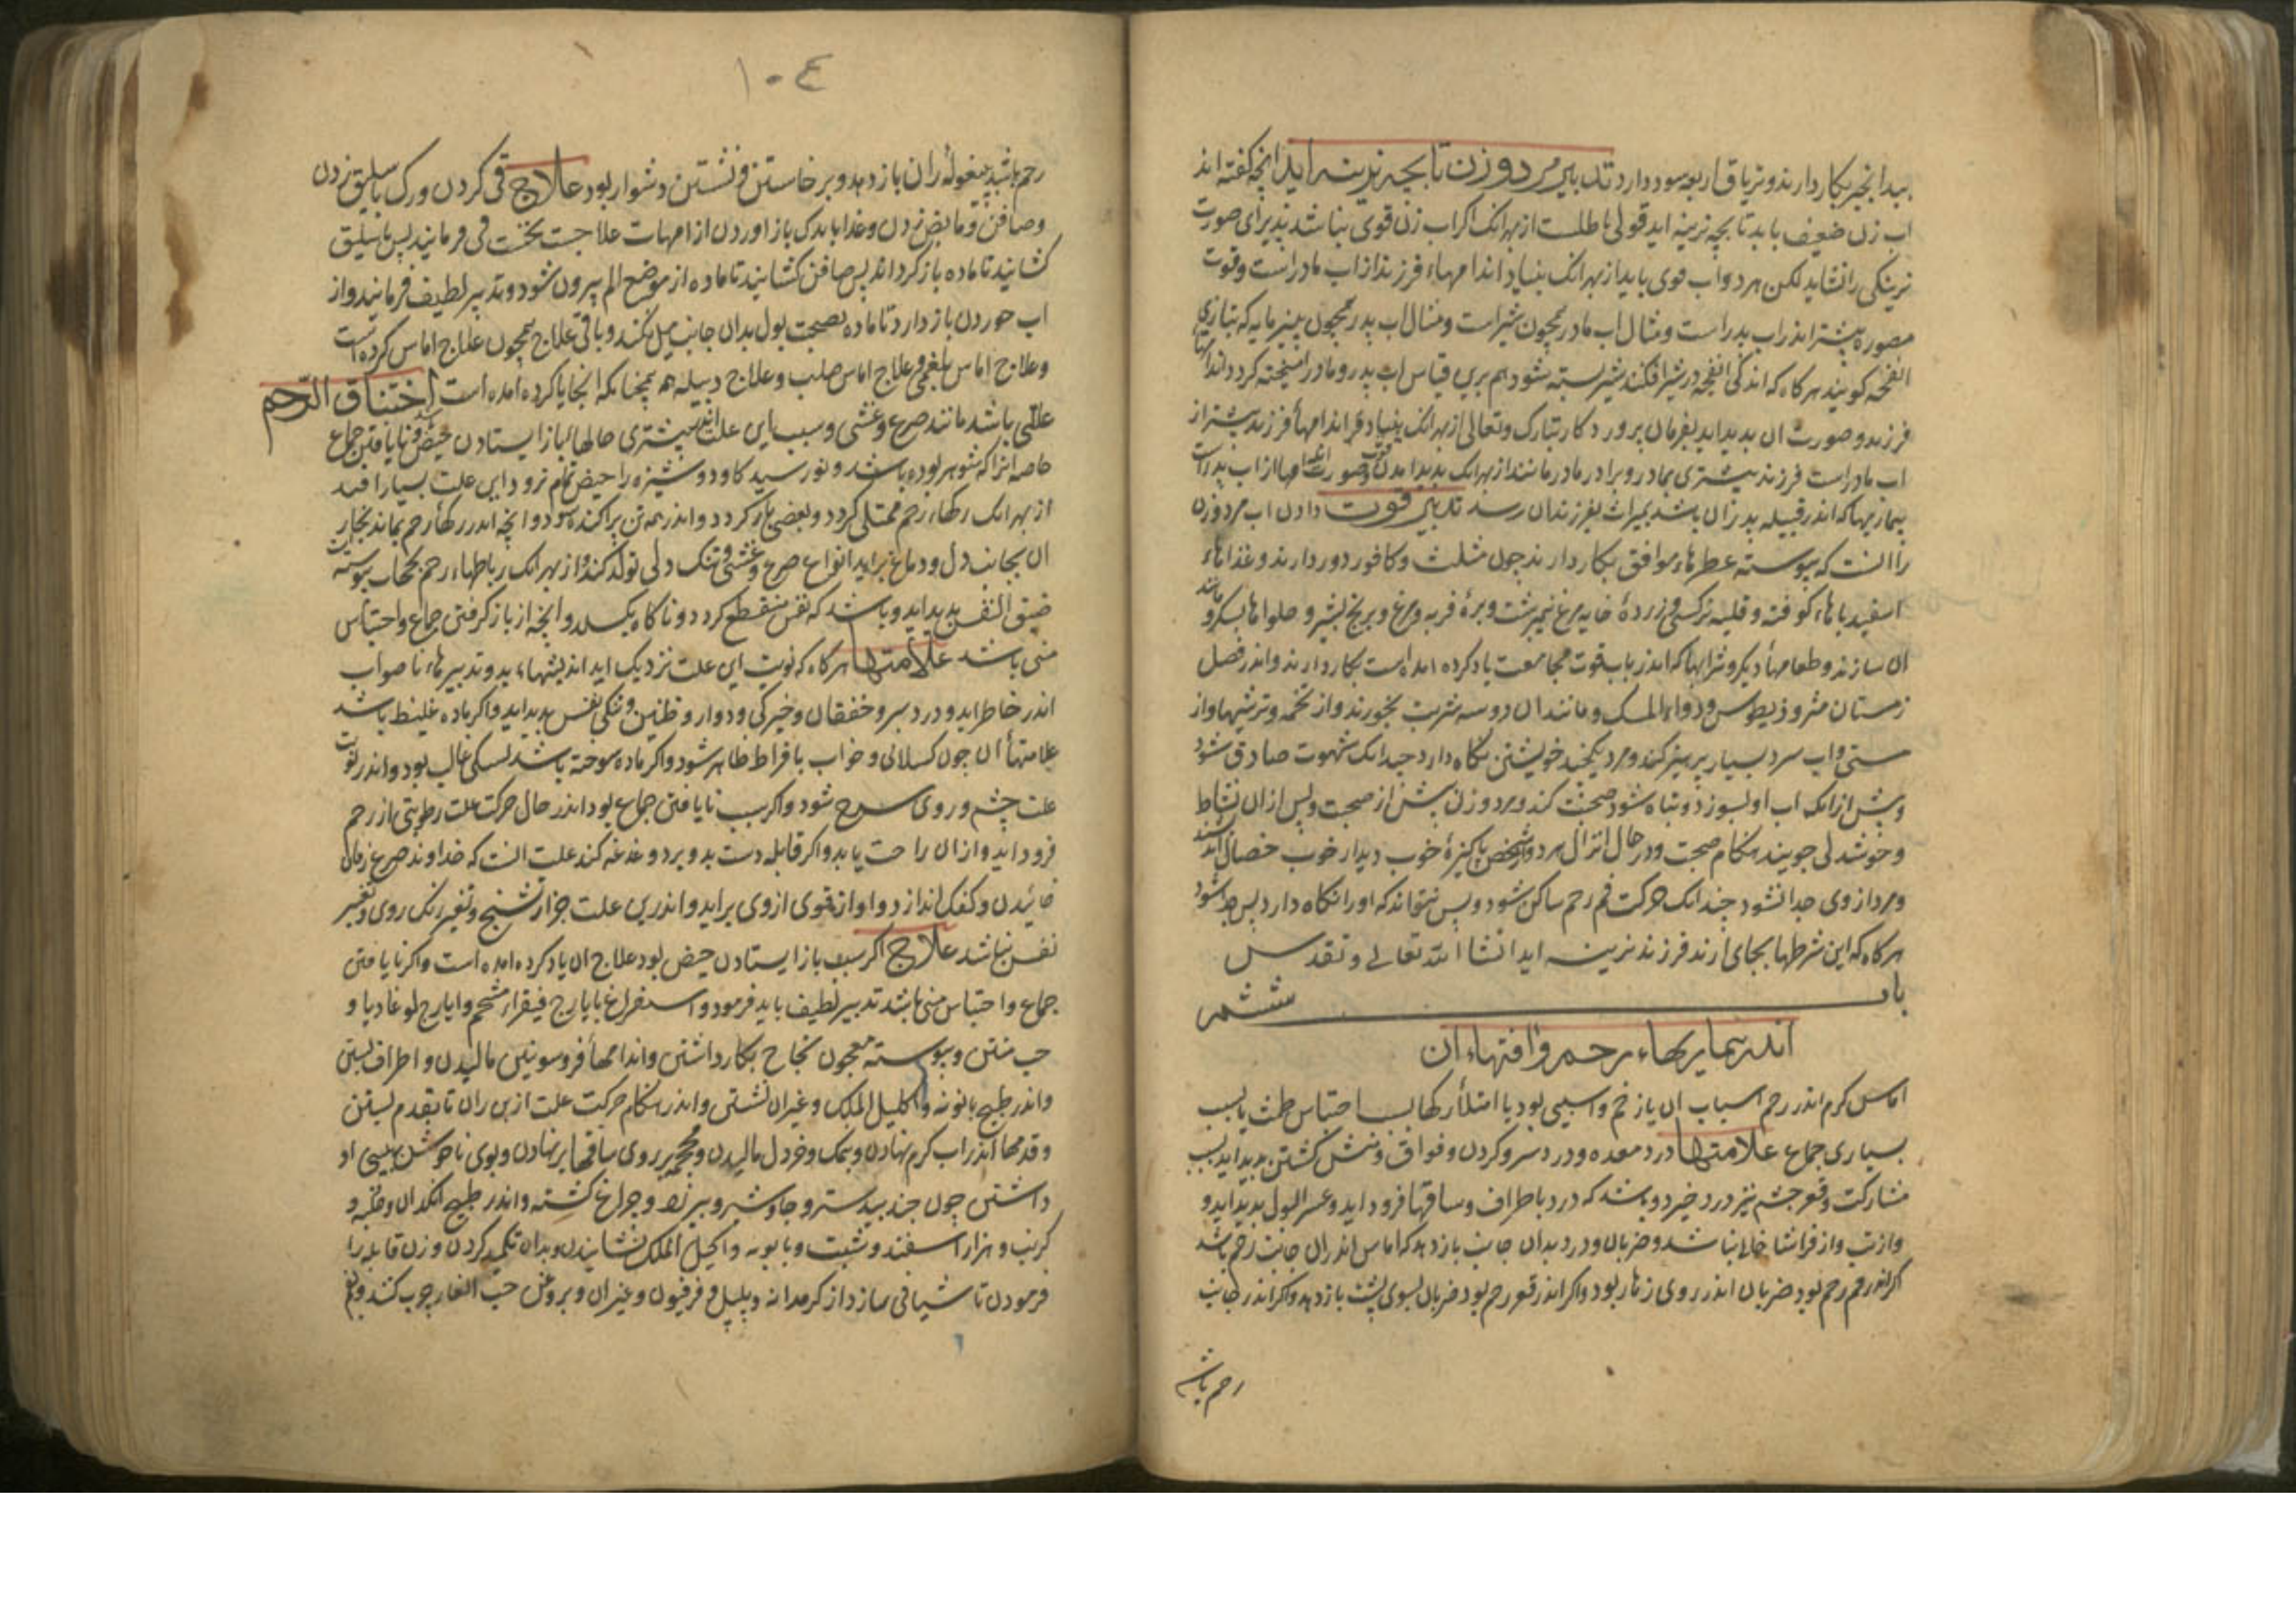 بیدانجیر بکار دارند و تریاق اربعه سود دارد تدبیر مرد و زن تا بچه نرینه اید انچه کفته اند
اب زن ضعیف باید تا بچه نرینه اید قولی باطلست از بهر انک اکر اب زن قوی نباشد پذیرای صورت
نرینکی را نشاید لکن هر دو اب قوی باید از بهر انک بنیاد اندامهاء فرزند از اب مادر است و قوت
مصوره بیشتر اندر اب پدر است و مثال اب مادر همچون شیر است و مثال اب پدر همچون پنیر مایه که بتازی
انفحه کویند هر کاه که اندکی انفحه در شیر افکنند شیر بسته شود هم برین قیاس اب پدر و مادر امیخته کردد و اندامهاء
فرزند و صورت ان پدید اید بفرمان پرورد کار تبارک و تعالی از بهر انک بنیاد اندامهاء فرزند بیشتر از
اب مادر است فرزند بیشتری بمادر و برادر مادر مانند از بهر انک پدید امدن قوت و صورت اندامها از اب پدر است
بیماریهاء که اندر قبیله پدر زان باشد بمیراث بفرزندان رسد تدبیر قوت دادن اب مرد و زن
را انست که پیوسته عطرهاء موافق بکار دارند چون مثلث و کافور دور دارند و غذاهاء
اسفیدباهاء کوفته و قلیه نرکسی و زرده خایه مرغ نیمبرشت و بره فربه و مرغ و برنج بشیر و حلواها بشکر و مانند
ان سازند و طعامهاء دیکر و شرابها که اندر باب قوت مجامعت یاد کرده امده است بکار دارند و اندر فصل
زمستان مثرودیطوس و دواء المسک و مانند ان دو سه شربت بخورند و از تخمه و ترشیها و از
مستی و اب سرد بسیار پرهیز کنند و مرد یکچند خویشتن نکاه دارد چندانک شهوت صادق شود
و پیش از انک اب او بسوزد و تباه شود صحبت کند و مرد و زن پیش از صحبت و پس از ان نشاط
و خوشدلی جویند هنکام صحبت و در حال انزال هر دو شخص پاکیزه خوب دیدار خوب خصال اندیشند
و مرد از وی جدا نشود چندانک حرکت فم رحم ساکن شود و پس بتواند که او را نکاه دارد پس جدا شود
هر کاه که این شرطها بجای ارند فرزند نرینه اید انشا الله تعالی و تقدس
باب ششم
اندر بیماریهاء رحم و افتهاء ان
اماس کرم اندر رحم اسباب ان یا زخم و اسیبی بود یا امتلاء رکها بسبب احتباس طمث یا بسبب
بسیاری جماع علامتها درد معده و درد سر و کردن و فواق و منش کشتن پدید اید بسبب
مشارکت و قعر چشم نیز درد خیزد و باشد که درد باطراف و ساقها فرود اید و عسر البول پدید اید و
و از تب و از فراشا خالی نباشد و ضربان و درد بدان جانب باز دهد که اماس اندر ان جانب رحم باشد
اکر اندر فم رحم بود ضربان اندر روی زهار بود و اکر اندر قعر رحم بود ضربان بسوی پشت باز دهد و اکر اندر جانب
رحم باشد
۱۰۴
رحم باشد پیغوله ران باز دهد و برخاستن و نشستن دشوار بود علاج قی کردن و رک باسلیق زدن
و صافن و مابض زدن و غذا باندک باز اوردن از امهات علاجست نخست قی فرمایند پس باسلیق
کشایند تا ماده باز کرداند پس صافن کشایند تا ماده از موضع الم بیرون شود و تدبیر لطیف فرمایند و از
اب خوردن باز دارد تا ماده بصحبت بول بدان جانب میل نکند و باقی علاج همچون علاج اماس کرده است
و علاج اماس بلغمی و علاج اماس صلب و علاج دبیله هم همچنانکه انجا یاد کرده امده است اختناق الرحم
علتی باشد مانند صرع و غشی و سبب این علت اندر بیشتری حالها باز ایستادن حیض و نایافتن جماع
خاصه انرا که شوهر بوده باشد و نو رسیدکان و دوشیزه را حیض تمام نرود این علت بسیار افتد
از بهر انک رکهاء رحم ممتلی کردد و بعضی باز کردد و اندر همه تن پراکنده شود و انچه اندر رکهاء رحم بماند بخار
ان بجانب دل و دماغ براید انواع صرع و غشی و تنک دلی تولد کند و از بهر انک رباطهاء رحم بحجاب پیوسته
ضیق النفس پدید اید و باشد که نفس منقطع کردد و ناکاه بکسلد و انچه از باز کرفتن جماع و احتباس
منی باشد علامتها هر کاه که نوبت این علت نزدیک اید اندیشهاء بد و تدبیرهاء ناصواب
اندر خاطر اید و درد سر و خفقان و خیرکی و دوار و طنین و تنکی نفس پدید اید و اکر ماده غلیظ باشد
علامتهاء ان چون کسلانی و خواب بافراط ظاهر شود و اکر ماده سوخته باشد خشکی غالب بود و اندر نوبت
علت چشم و روی سرخ شود و اکر سبب نایافتن جماع بود اندر حال حرکت علت رطوبتی از رحم
فرود اید و از ان راحت یابد و اکر قابله دست بدو برد و دغدغه کند علت انست که خداوند صرع زبان
خائیدن و کفک اندازد و اواز قوی از وی براید و اندرین علت جز از تشنج و تغیر رنک روی و تغیر
نفس نباشد علاج اکر سبب باز ایستادن حیض بود علاج ان یاد کرده امده است و اکر نایافتن
جماع و احتباس منی باشد تدبیر لطیف باید فرمود و استفراغ بایارج فیقراء شحم و ایارج لوغادیا و
حب منتن و پیوسته معجون نجاح بکار داشتن و اندامهاء فروسوئین مالیدن و اطراف بستن
و اندر طبیخ بابونه و اکلیل الملک و غیر ان نشستن و اندر هنکام حرکت علت از بن ران تا بقدم بستن
و قدمها اندر اب کرم نهادن و بنمک و خردل مالیدن و محجمه بر روی ساقها بر نهادن و بوی ناخوش ببینی او
داشتن چون جندبیدستر و جاوشیر و بیرزد و چراغ کشته و اندر طبیخ انکدان و حلبه و
کرنب و هزار اسفند و شبت و بابونه و اکلیل الملک نشایندن و بدان تکمید کردن و زن قابله را
فرمودن تا شیافی سازد از کرمدانه و پلپل و فرفیون و غیر ان و بروغن حب الغار چرب کند و بفم